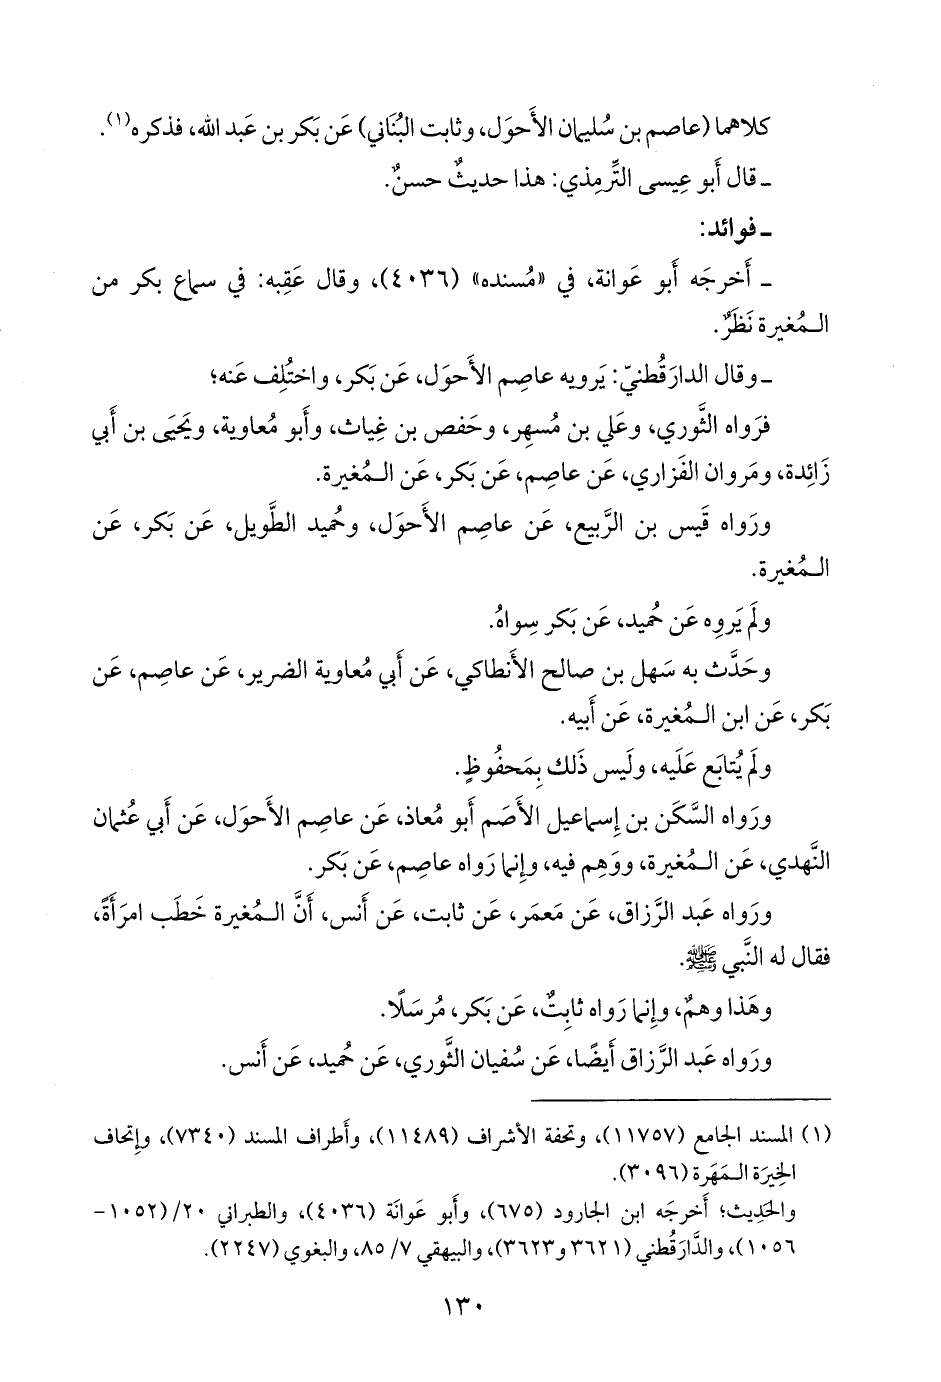 كلاهما (عاصم بن سُليمان الأَحوَل، وثابت البُنَاني) عَن بَكر بن عَبد الله، فذكره(١).
ـ قال أَبو عِيسى التِّرمِذي: هذا حديثٌ حسنٌ.
ـ فوائد:
ـ أَخرجَه أَبو عَوانة، في «مُسنده» (٤٠٣٦)، وقال عَقِبه: في سماع بكر من
الـمُغيرة نَظَرٌ.
ـ وقال الدارَقُطنيّ: يَرويه عاصِم الأَحوَل، عَن بَكر، واختُلِف عَنه؛
فرَواه الثَّوري، وعَلي بن مُسهِر، وحَفص بن غِياث، وأَبو مُعاوية، ويَحيَى بن أَبي
زَائِدة، ومَروان الفَزاري، عَن عاصِم، عَن بَكر، عَن الـمُغيرة.
ورَواه قَيس بن الرَّبيع، عَن عاصِم الأَحوَل، وحُميد الطَّويل، عَن بَكر، عَن
الـمُغيرة.
ولَم يَروِه عَن حُميد، عَن بَكر سِواهُ.
وحَدَّث به سَهل بن صالح الأَنطاكي، عَن أَبي مُعاوية الضرير، عَن عاصِم، عَن
بَكر، عَن ابن الـمُغيرة، عَن أَبيه.
ولَم يُتابَع عَلَيه، ولَيس ذَلك بِمَحفُوظٍ.
ورَواه السَّكَن بن إِسماعيل الأَصَم أَبو مُعاذ، عَن عاصِم الأَحوَل، عَن أَبي عُثمان
النَّهدي، عَن الـمُغيرة، ووَهِم فيه، وإِنما رَواه عاصِم، عَن بَكر.
ورَواه عَبد الرَّزاق، عَن مَعمَر، عَن ثابت، عَن أَنس، أَنَّ الـمُغيرة خَطَب امرَأَةً،
فقال له النَّبي ﷺ.
وهَذا وهمٌ، وإِنما رَواه ثابِتٌ، عَن بَكر، مُرسَلًا.
ورَواه عَبد الرَّزاق أَيضًا، عَن سُفيان الثَّوري، عَن حُميد، عَن أَنس.
(١) المسند الجامع (١١٧٥٧)، وتحفة الأشراف (١١٤٨٩)، وأَطراف المسند (٧٣٤٠)، وإِتحاف
الخِيرَة الـمَهَرة (٣٠٩٦).
والحَدِيث؛ أَخرجَه ابن الجارود (٦٧٥)، وأَبو عَوانَة (٤٠٣٦)، والطبراني ٢٠/(١٠٥٢-
١٠٥٦)، والدَّارَقُطني (٣٦٢١ و٣٦٢٣)، والبيهقي ٧/ ٨٥، والبغوي (٢٢٤٧).
١٣٠